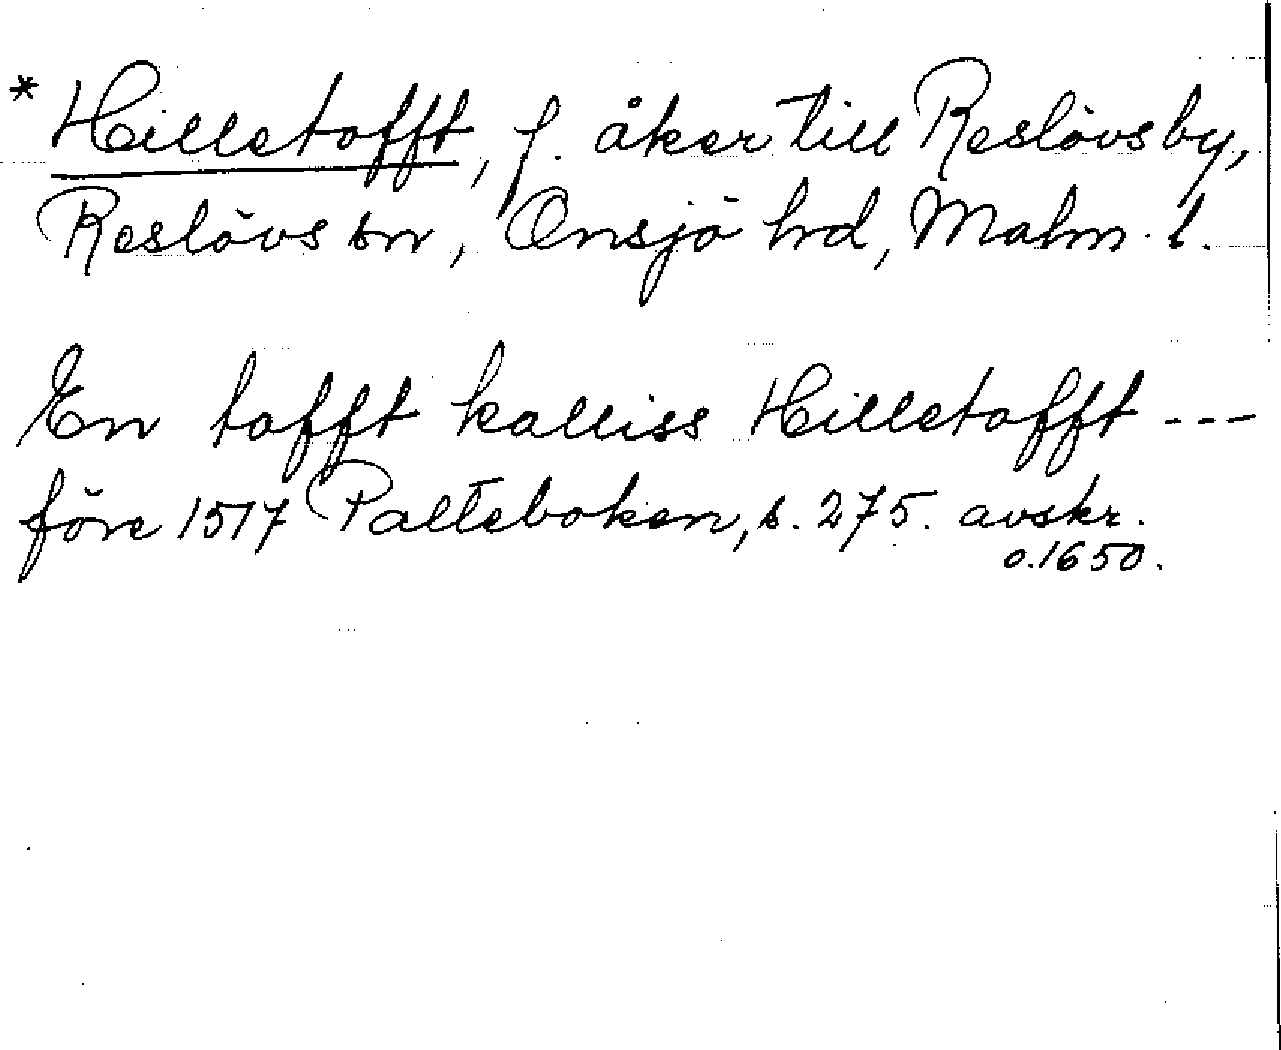 * Hilletofft, f. åker till Reslövsby,
Reslövs sn, Onsjö hrd, Malm. l.
En tofft kalliss Hilletofft ---
före 1517 Palteboken, s. 275. avskr.
o. 1650.